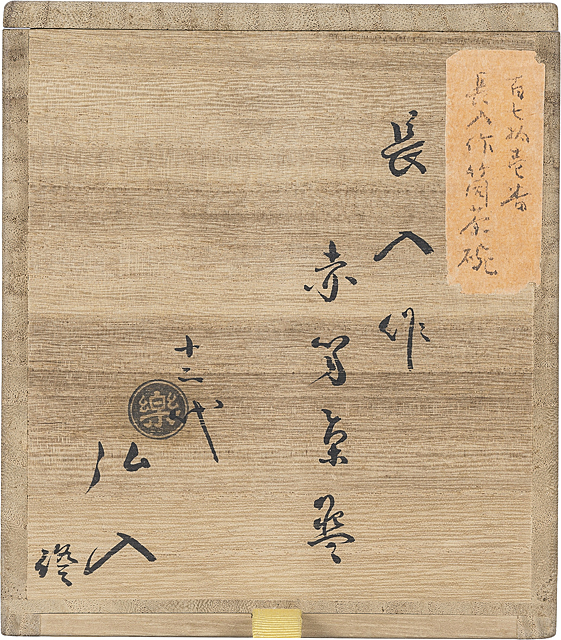 百七拾壱番
長入作筒茶碗
長入作
赤筒茶碗
十二代
樂
弘入
證